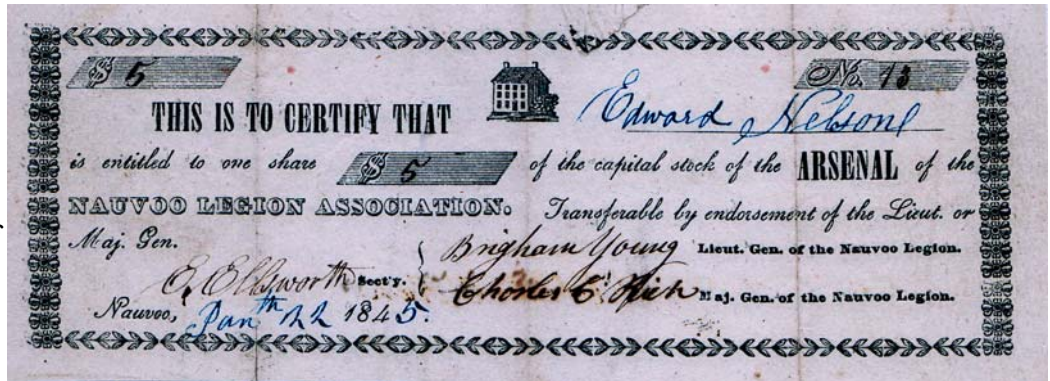 $ 5
No. 13
THIS IS TO CERTIFY THAT Edward Nelson
is entitled to one share $ 5 of the capital stock of the ARSENAL of the
NAUVOO LEGION ASSOCIATION. Transferable by endorsement of the Lieut. or
Maj. Gen.
Brigham Young Lieut. Gen. of the Nauvoo Legion.
E. Ellsworth Sect'y.
Charles C. Rich Maj. Gen. of the Nauvoo Legion.
Nauvoo, Jan th 22 1845.